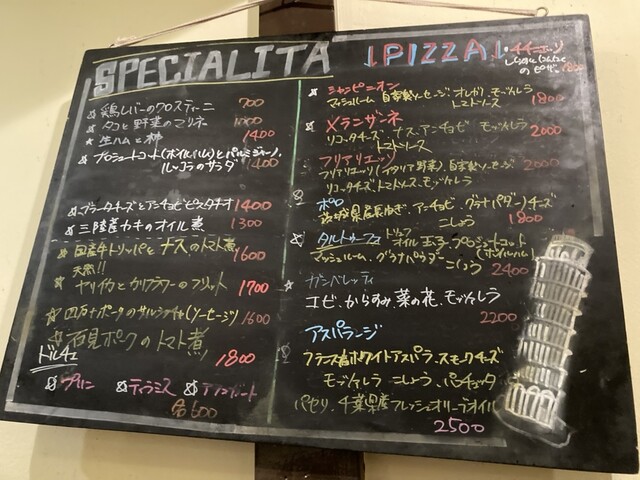 SPECIALITA
鶏レバーのクロスティーニ 700
タコと野菜のマリネ 1000
生ハムと柿 1400
プロシュートコット(ボイルハム)とパルミジャーノ、
ルッコラのサラダ 1400
ブラータチーズとアンチョビとピスタチオ 1400
三陸産カキのオイル煮 1300
国産牛トリッパとナスのトマト煮 1600
天然!!
ヤリイカとカリフラワーのフリット 1700
四万十ポークのサルシッチャ(ソーセージ) 1600
石見ポークのトマト煮
1800
ドルチェ
プリン ティラミス アフォガート
各600
PIZZA
チチニエリ
しらすとにんにく
のピザ 1800
シャンピニオン
マッシュルーム 自家製ソーセージ オレガノ モッツァレラ
トマトソース 1800
メランザーネ
リコッタチーズ ナス アンチョビ モッツァレラ
トマトソース 2000
フリアリエッリ
フリアリエッリ(イタリア野菜)、自家製ソーセージ 2000
リコッタチーズ、トマトソース、モッツァレラ
ポロ
ねぎ、アンチョビ、グラナパダーノチーズ
こしょう 1800
タルトゥーフォ トリュフオイル 玉子 プロシュートコット
(ボイルハム)
マッシュルーム、グラナパダーノ こしょう 2400
ガンベレッティ
エビ、からすみ 菜の花、モッツァレラ
2200
アスパラージ
フランス産ホワイトアスパラ、スモークチーズ
モッツァレラ こしょう、パンチェッタ
パセリ、千葉県産フレッシュオリーブオイル
2500